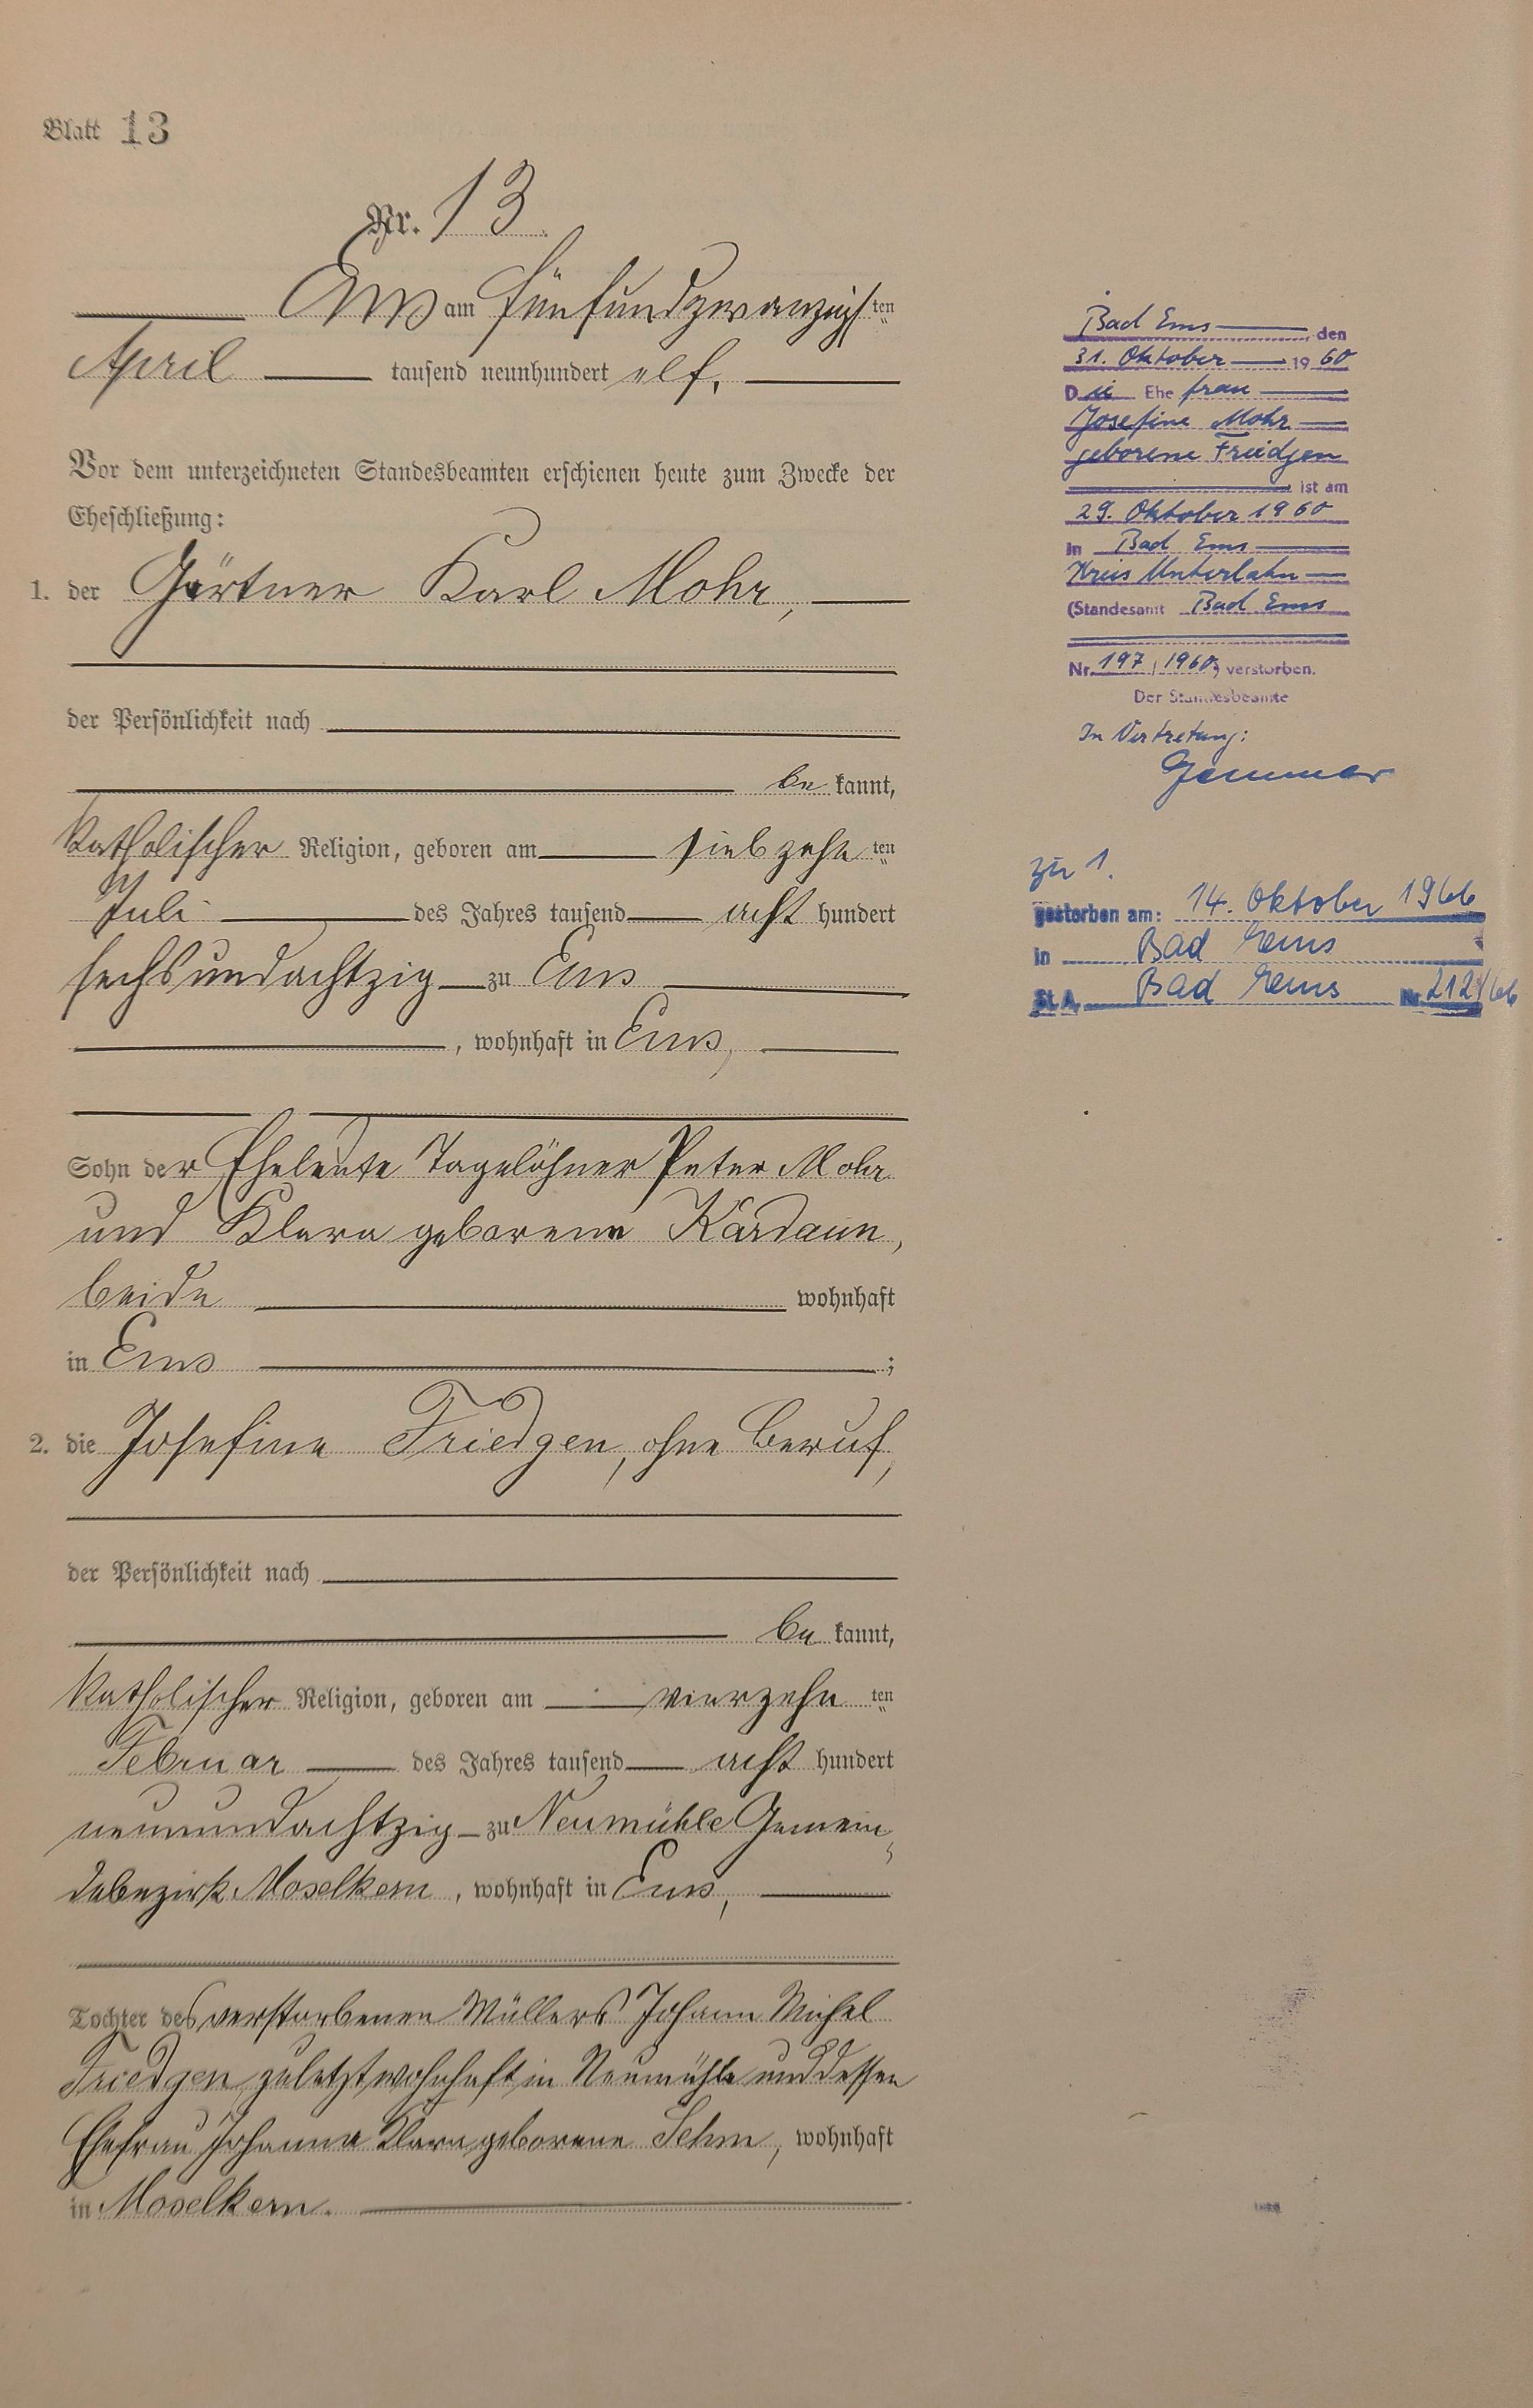 Blatt 13
Nr. 13.
Ems am fünfundzwanzigsten
April tausend neunhundert elf.
Vor dem unterzeichneten Standesbeamten erschienen heute zum Zwecke der
Eheschließung:
1. der Gärtner Karl Mohr,
der Persönlichkeit nach
be kannt,
katholischer Religion, geboren am siebzehn ten
Juli des Jahres tausend acht hundert
sechsundachtzig zu Ems
, wohnhaft in Ems,
Sohn der Eheleute Tagelöhner Peter Mohr
und Klara geborene Kardaun,
beide wohnhaft
in Ems ;
2. die Josefine Friedgen, ohne Beruf,
der Persönlichkeit nach
be kannt,
katholischer Religion, geboren am vierzehn ten
Februar des Jahres tausend acht hundert
neunundachtzig zu Neumühle Gemein-
debezirk Moselkern, wohnhaft in Ems,
Tochter des verstorbenen Müllers Johann Michel
Friedgen zuletzt wohnhaft in Neumühle und dessen
Ehefrau Johanna Klara geborene Sehm, wohnhaft
in Moselkern.
Bad Ems, den
31. Oktober 1960
Die Ehefrau
Josefine Mohr
geborene Friedgen
ist am
29. Oktober 1960
in Bad Ems
Kreis Unterlahn
(Standesamt Bad Ems
Nr. 197 / 1960) verstorben.
Der Standesbeamte
In Vertretung:
Gemmer
zu 1.
gestorben am: 14. Oktober 1966
in Bad Ems
St.A. Bad Ems Nr. 212/66